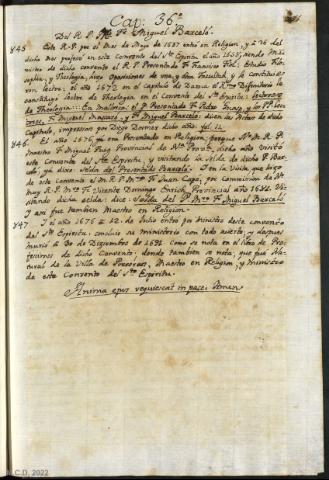 Cap: 36º
Del R. P. Mº Fr. Miguel Barceló.
845 Este R. P. por el mes de Mayo de 1657 entró en Religion, y a 26 del
dicho mes profesó en este Convento del Sto Espiritu el año 1658, siendo Mi-
nistro de dicho convento el R. P. Presentado Fr. Francisco Fiol: Estudió Filo-
sophia, y Theologia, hizo Oposiciones de una, y otra Facultad, y le
ron lector: el año 1672 en el capitulo de Daroca el Rmo Difinitorio le
constituyó lector de Theologia en el Convento del Sto Espiritu: Lectores
de Theologia::: En Mallorca: el P. Presentado Fr. Pedro Puig, y los PP. lec-
tores, Fr. Miguel, y Fr. Miguel Barcelo: dicen las Actas de dicho
Capitulo, impressas por Diego Dormer dicho año fol. 12.
846. El año 1675 ya era Presentado en Religion, porque el M. R. P.
Maestro Fr. Miguel Puig Provincial de Nra Provª, dicho año visitó
este Convento del Sto Espiritu, y visitando la selda de dicho P. Bar-
celo, ya dice: Selda del Presentado Barceló: Y en la Visita, que hizo
de este Convento el M. R. P. Mtro Fr. Juan Capó, por Commission de N.
Muy R. P. Mtro Fr. Vicente Domingo Enrich, Provincial año 1682. Vi-
sitando dicha selda: dice: Selda del P. Mtro Fr. Miguel Barceló
Y assi fue tambien Maestro en Religion.
847 Y el año 1676 a 12. de Julio entró por ministro deste convento
del Sto Espiritu: concluió su Ministerio con todo acierto; y despues
murió a 30 de Diziembre de 1691 como se nota en el libro de Pro-
fesiones de dicho Convento; donde tambien se nota, que fue Na-
tural de la Villa de Porreras, Maestro en Religion, y Ministro
de este Convento del Sto Espiritu.
Anima ejus requiescat in pace: Amen
C.D. 2022